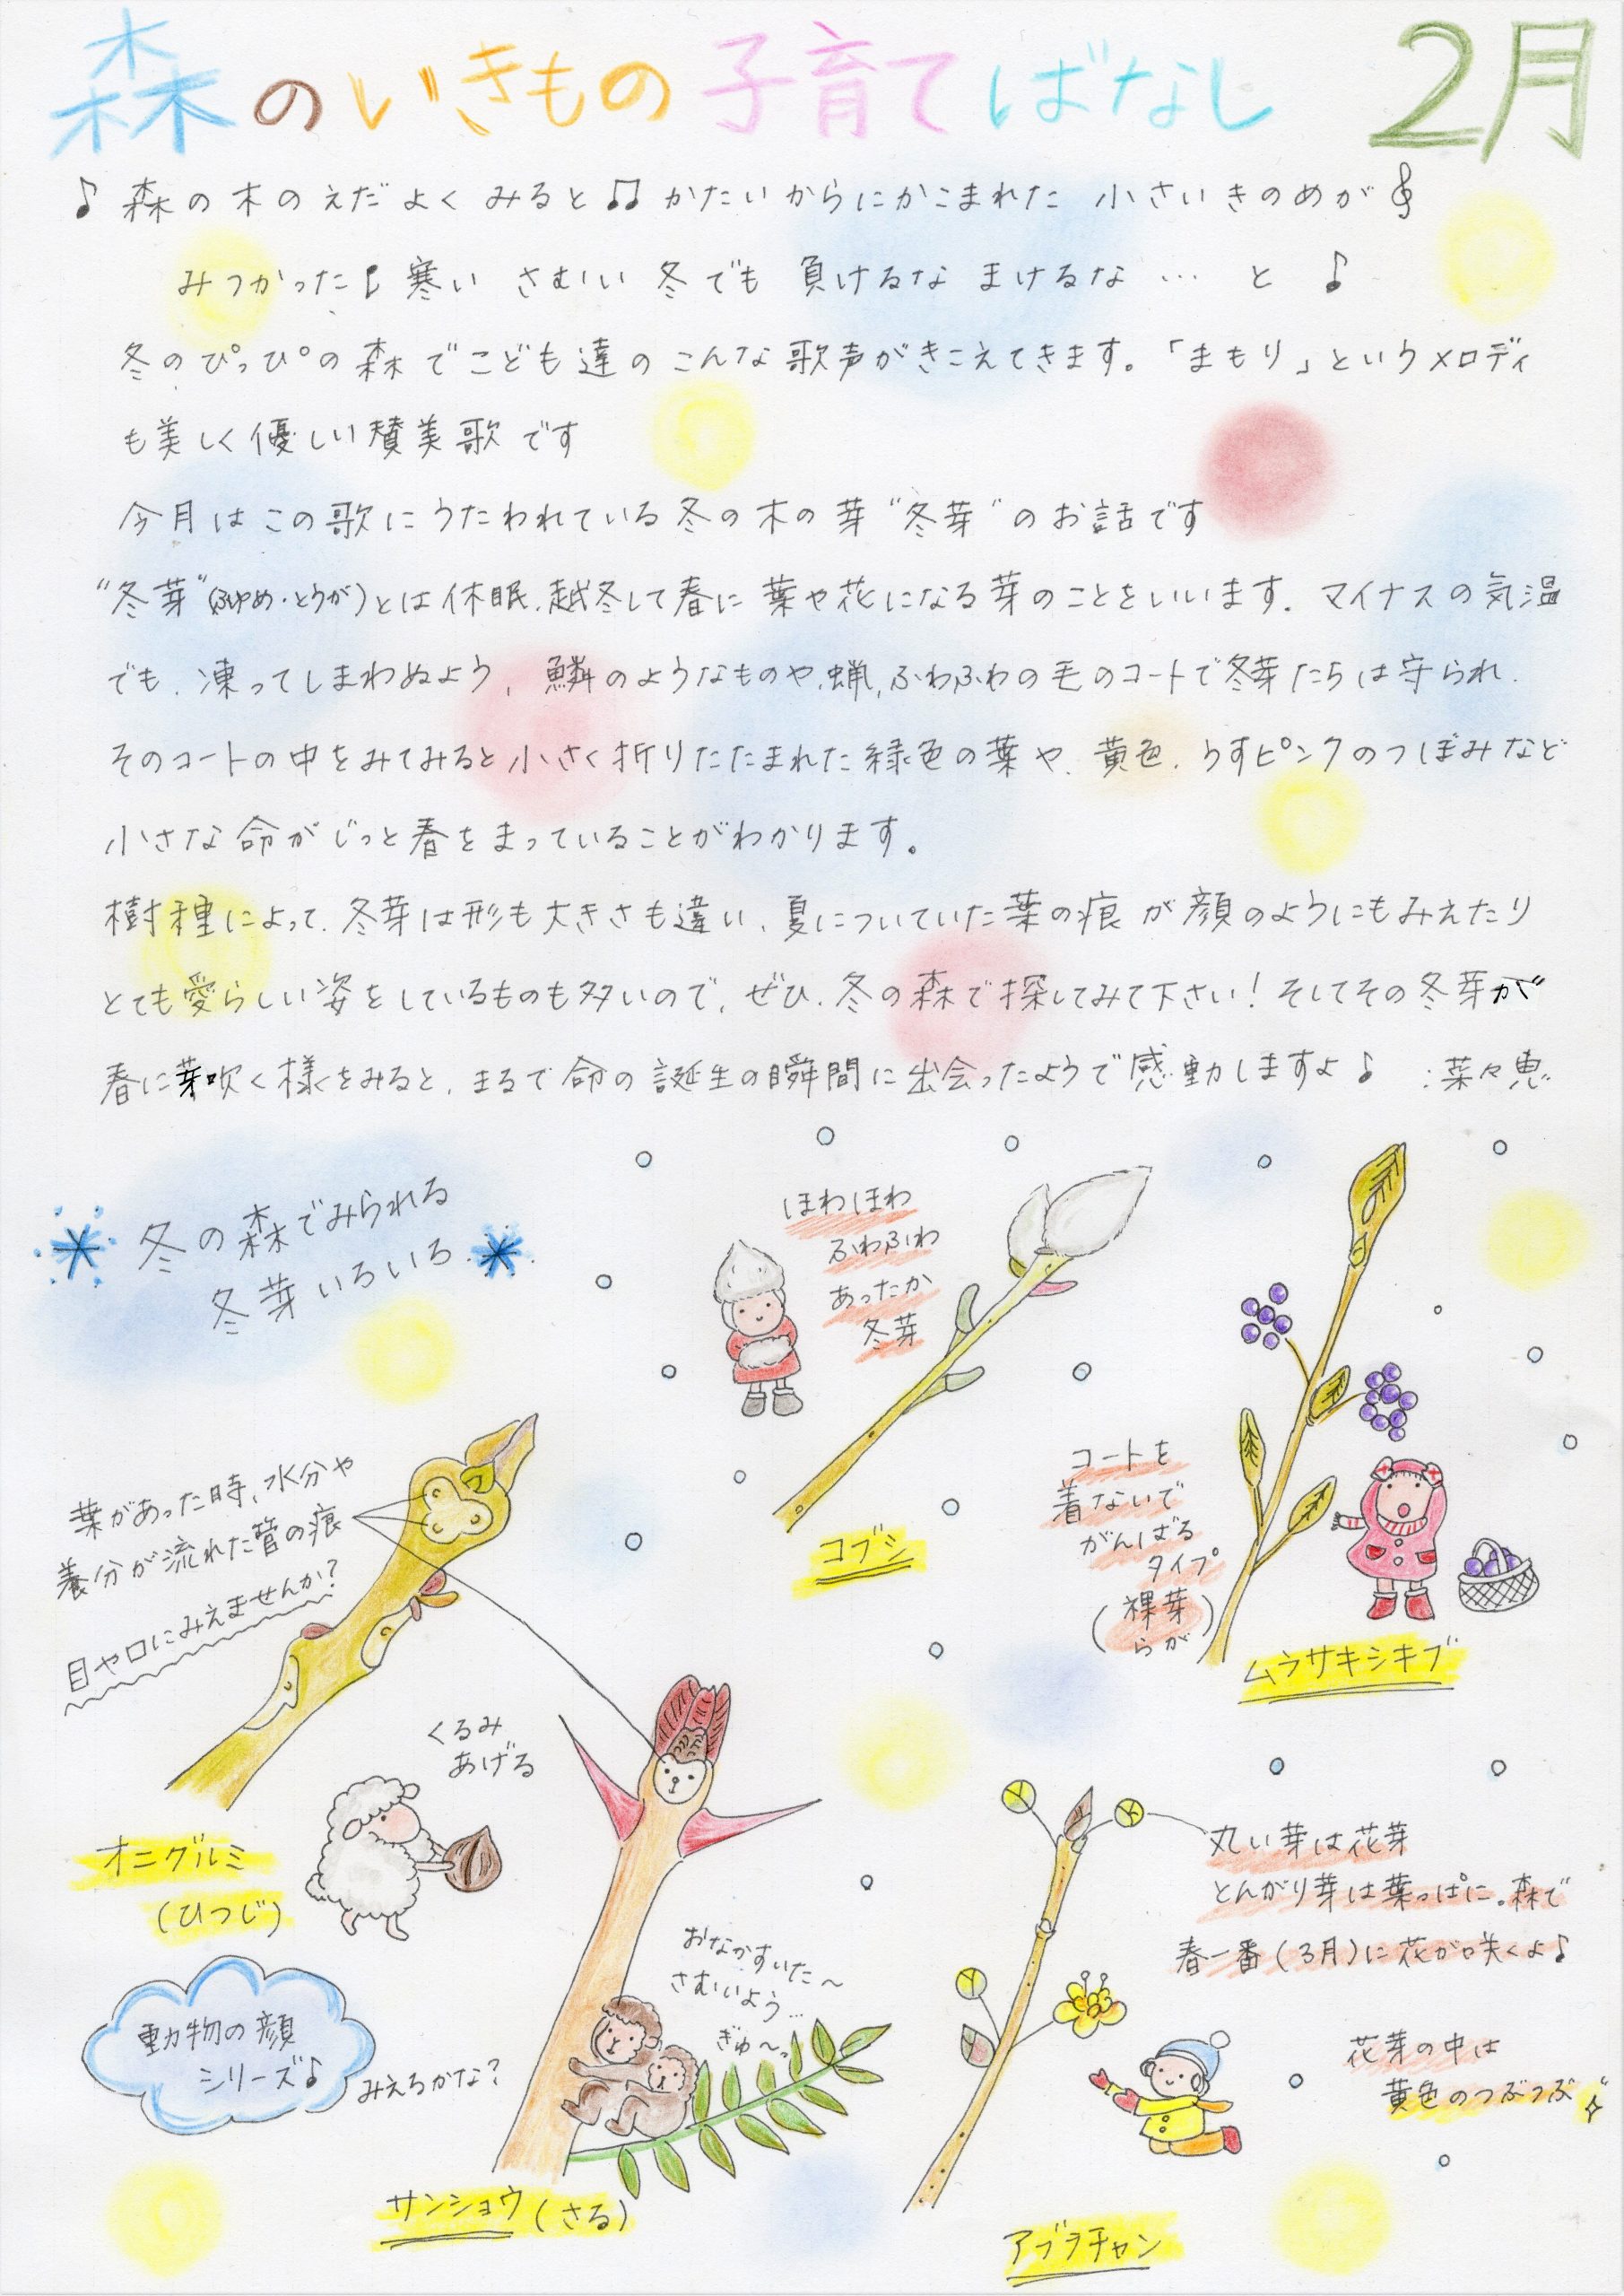 森のいきもの子育てばなし 2月
♪森の木のえだよくみると♫かたいからにかこまれた 小さいきのめが
みつかった♪寒い さむい 冬でも 負けるな まけるな … と ♪
冬のぴっぴの森でこども達のこんな歌声がきこえてきます。「まもり」というメロディ
も美しく優しい賛美歌です
今月はこの歌にうたわれている冬の木の芽"冬芽"のお話です
"冬芽"(ふゆめ・とうが)とは休眠、越冬して春に葉や花になる芽のことをいいます。マイナスの気温
でも、凍ってしまわぬよう、鱗のようなものや、蝋、ふわふわの毛のコートで冬芽たちは守られ、
そのコートの中をみてみると小さく折りたたまれた緑色の葉や、黄色、うすピンクのつぼみなど
小さな命がじっと春をまっていることがわかります。
樹種によって、冬芽は形も大きさも違い、夏についていた葉の痕が顔のようにもみえたり
とても愛らしい姿をしているものも多いので、ぜひ、冬の森で探してみて下さい!そしてその冬芽が
春に芽吹く様をみると、まるで命の誕生の瞬間に出会ったようで感動しますよ♪ :菜々恵
冬の森でみられる
冬芽いろいろ
ほわほわ
ふわふわ
あったか
冬芽
コブシ
コートを
着ないで
がんばる
タイプ
(裸芽)
らが
ムラサキシキブ
葉があった時、水分や
養分が流れた管の痕
目や口にみえませんか?
くるみ
あげる
オニグルミ
(ひつじ)
動物の顔
シリーズ♪
みえるかな?
おなかすいた〜
さむいよう…
ぎゅ〜っ
サンショウ(さる)
丸い芽は花芽
とんがり芽は葉っぱに。森で
春一番(3月)に花が咲くよ♪
花芽の中は
黄色のつぶつぶ
アブラチャン